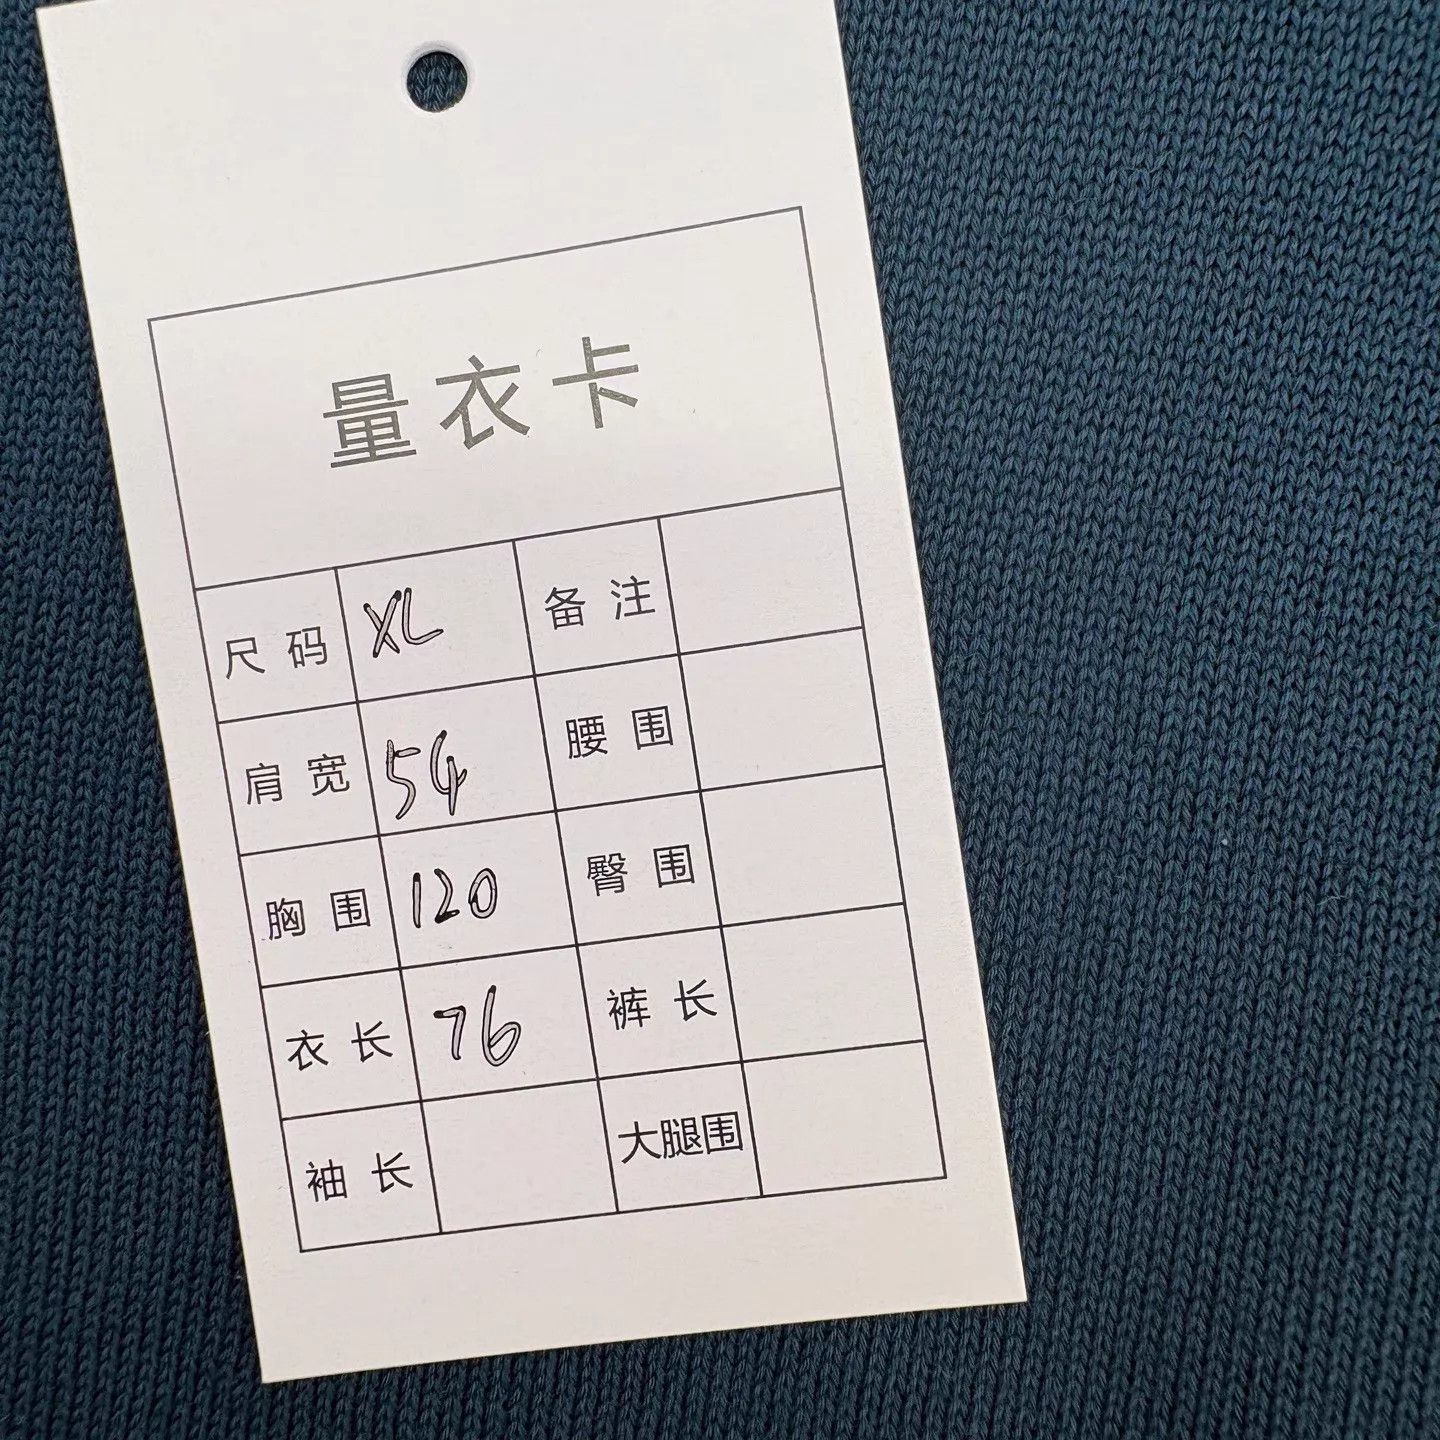 量衣卡
尺码 XL 备注
肩宽 54 腰围
胸围 120 臀围
衣长 76 裤长
袖长 大腿围